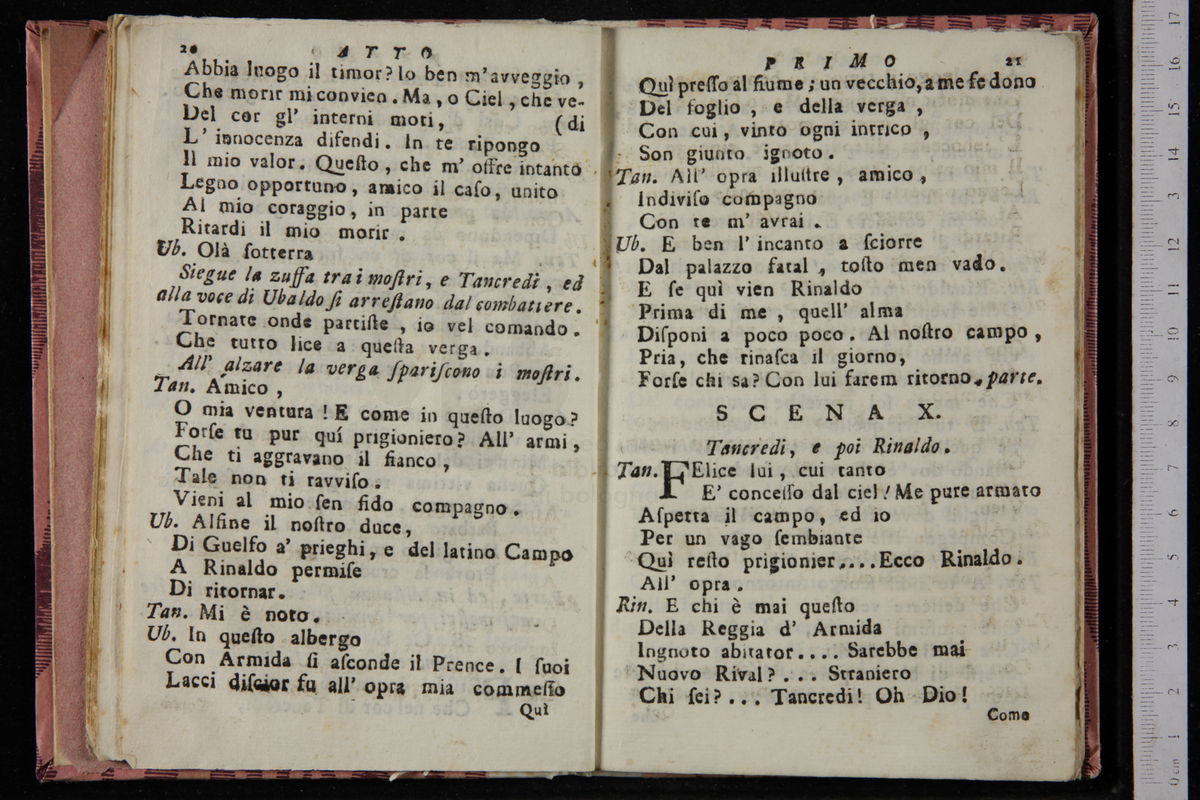 20 ATTO
Abbia luogo il timor? Io ben m'avveggio,
Che morir mi convien. Ma, o Ciel, che ve-
Del cor gl' interni moti, (di
L' innocenza difendi. In te ripongo
Il mio valor. Queſto, che m' offre intanto
Legno opportuno, amico il caſo, unito
Al mio coraggio, in parte
Ritardi il mio morir.
Ub. Olà ſotterra
Siegue la zuffa tra i moſtri, e Tancredi, ed
alla voce di Ubaldo ſi arreſtano dal combattere.
Tornate onde partiſte, io vel comando.
Che tutto lice a queſta verga.
All' alzare la verga ſpariſcono i moſtri.
Tan. Amico,
O mia ventura! E come in queſto luogo?
Forſe tu pur quí prigioniero? All' armi,
Che ti aggravano il fianco,
Tale non ti ravviſo.
Vieni al mio ſen fido compagno.
Ub. Alfine il noſtro duce,
Di Guelfo a' prieghi, e del latino Campo
A Rinaldo permiſe
Di ritornar.
Tan. Mi è noto.
Ub. In queſto albergo
Con Armida ſi aſconde il Prence. I ſuoi
Lacci diſcior fu all' opra mia commeſſo
Quì
PRIMO 21
Quì preſſo al fiume; un vecchio, a me fe dono
Del foglio, e della verga,
Con cui, vinto ogni intrico,
Son giunto ignoto.
Tan. All' opra illuſtre, amico,
Indiviſo compagno
Con te m' avrai.
Ub. E ben l' incanto a ſciorre
Dal palazzo fatal, toſto men vado.
E ſe quì vien Rinaldo
Prima di me, quell' alma
Diſponi a poco poco. Al noſtro campo,
Pria, che rinaſca il giorno,
Forſe chi sa? Con lui farem ritorno. parte.
SCENA X.
Tancredi, e poi Rinaldo.
Tan. FElice lui, cui tanto
E' conceſſo dal ciel! Me pure armato
Aſpetta il campo, ed io
Per un vago ſembiante
Quì reſto prigionier.... Ecco Rinaldo.
All' opra.
Rin. E chi è mai queſto
Della Reggia d' Armida
Ingnoto abitator.... Sarebbe mai
Nuovo Rival?... Straniero
Chi ſei?... Tancredi! Oh Dio!
Come